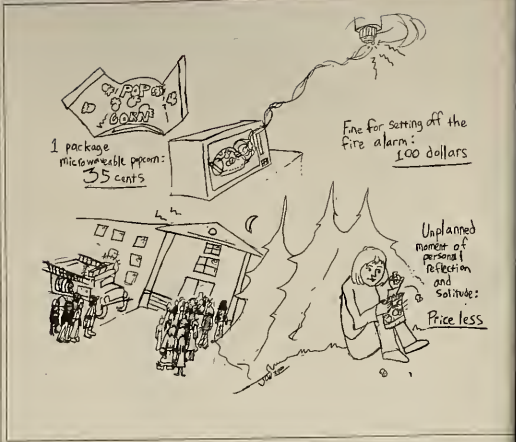 POP
CORN
1 package
microwaveable popcorn:
35 cents
Fine for setting off the
fire alarm:
100 dollars
Unplanned
moment of
personal
reflection
and
solitude:
Price less